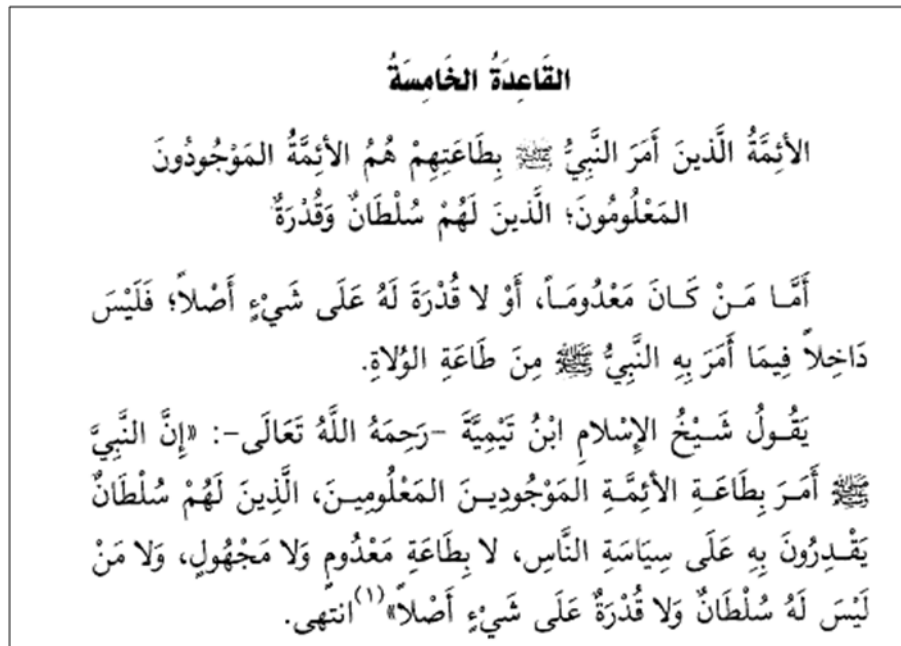 القَاعِدَةُ الخَامِسَةُ
الأئِمَّةُ الَّذينَ أَمَرَ النَّبِيُّ ﷺ بِطَاعَتِهِمْ هُمُ الأئِمَّةُ المَوْجُودُونَ
المَعْلُومُونَ؛ الَّذينَ لَهُمْ سُلْطَانٌ وَقُدْرَةٌ
أَمَّا مَنْ كَانَ مَعْدُومَاً، أَوْ لا قُدْرَةَ لَهُ عَلَى شَيْءٍ أَصْلاً؛ فَلَيْسَ
دَاخِلاً فِيمَا أَمَرَ بِهِ النَّبِيُّ ﷺ مِنَ طَاعَةِ الوُلاةِ.
يَقُولُ شَيْخُ الإِسْلامِ ابْنُ تَيْمِيَّةَ -رَحِمَهُ اللَّهُ تَعَالَى-: «إِنَّ النَّبِيَّ
ﷺ أَمَرَ بِطَاعَةِ الأئِمَّةِ المَوْجُودِينَ المَعْلُومِينَ، الَّذِينَ لَهُمْ سُلْطَانٌ
يَقْدِرُونَ بِهِ عَلَى سِيَاسَةِ النَّاسِ، لا بِطَاعَةِ مَعْدُومٍ وَلا مَجْهُولٍ، وَلا مَنْ
لَيْسَ لَهُ سُلْطَانٌ وَلا قُدْرَةٌ عَلَى شَيْءٍ أَصْلاً»(١) انتهى.